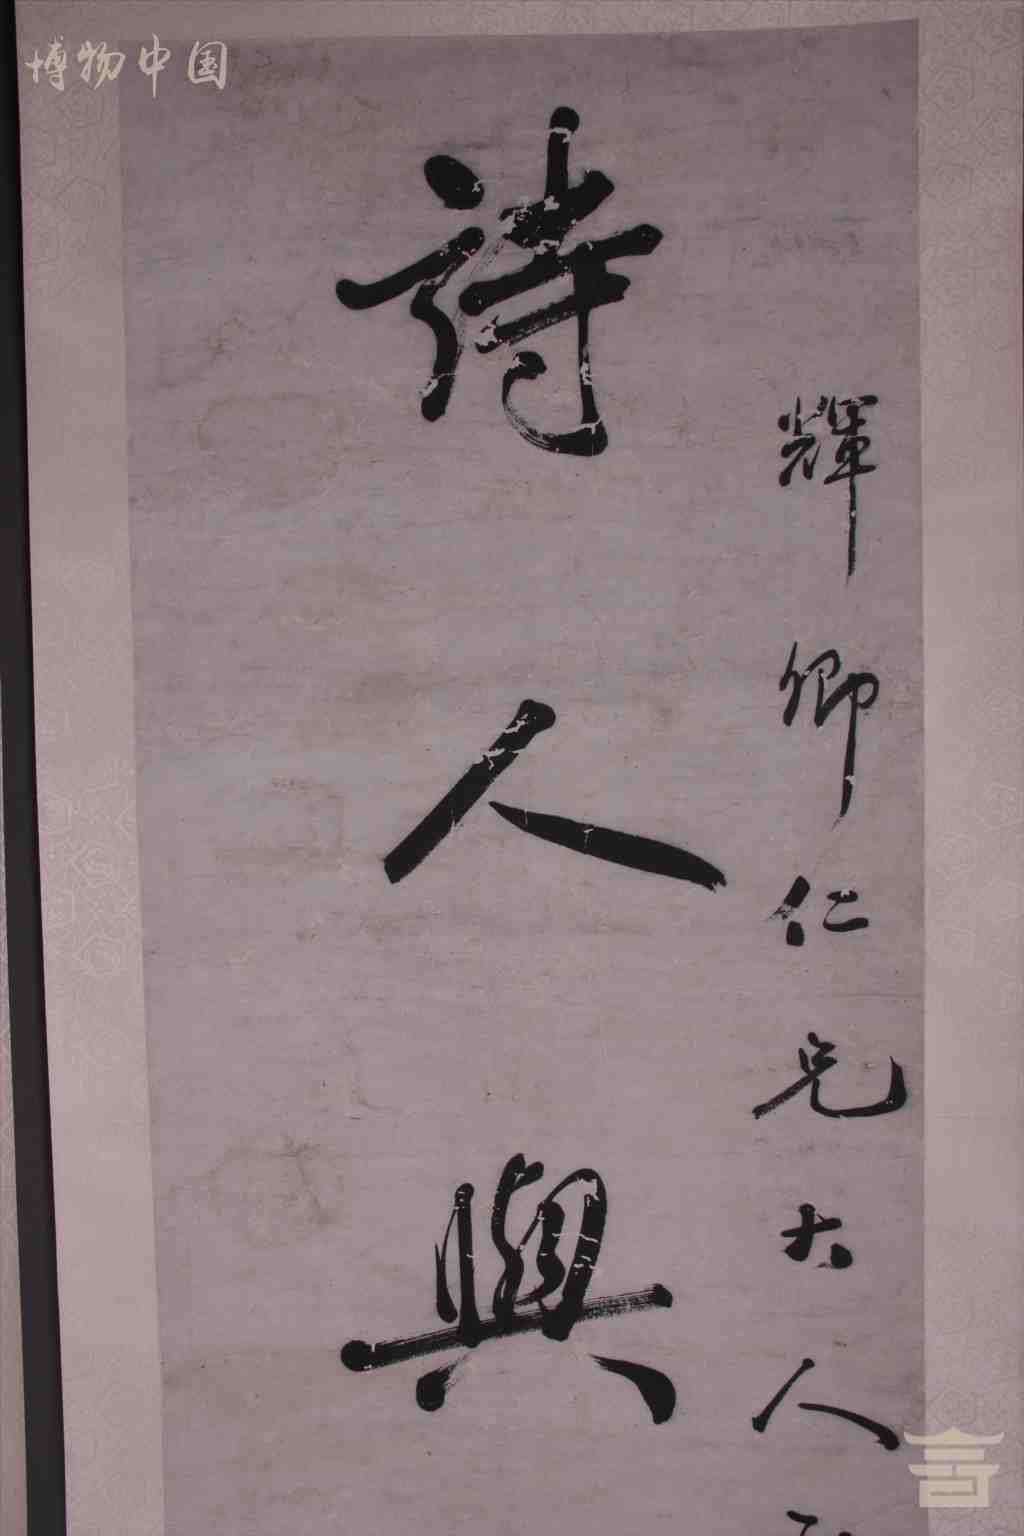 博物中国
輝卿仁兄大人
詩人興